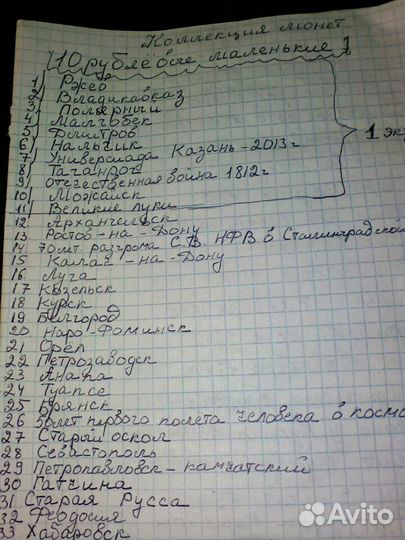 Коллекция монет
[10 рублёвые маленькие]
1) Ржев
2) Владикавказ
3) Полярный
4) Малгобек
5) Дмитров
6) Нальчик
7) Универсиада Казань-2013г
8) Таганрог
9) Отечественная война 1812г
10) Можайск
11) Великие луки
1 экз
12 Архангельск
13 Ростов-на-Дону
14. 70 лет разгрома С.В. НФВ в Сталинградской
15 Калач-на-Дону
16 Луга
17 Козельск
18 Курск
19 Белгород
20 Наро-Фоминск
21 Орёл
22 Петрозаводск
23 Анапа
24 Туапсе
25 Брянск
26 50 лет первого полёта человека в космос
27 Старый оскол
28 Севастополь
29 Петропавловск-камчатский
30 Гатчина
31 Старая Русса
32 Феодосия
33 Хабаровск
Avito